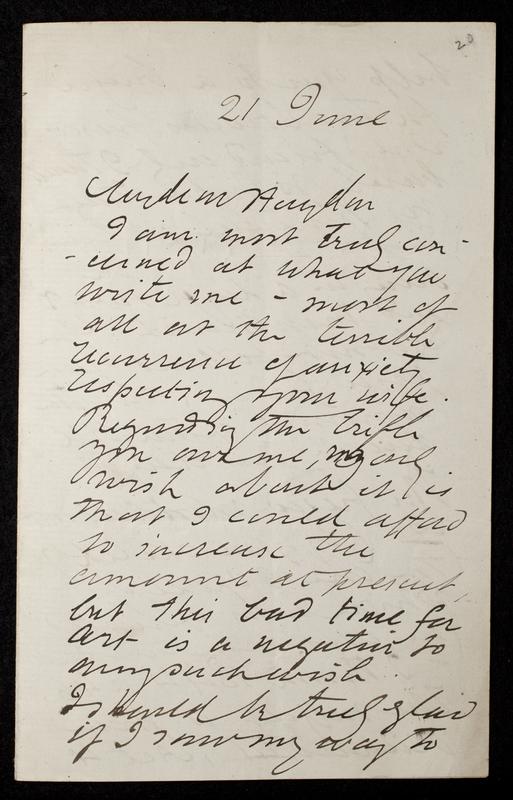 20
21 June
My dear Haydon
I am most truly con-
-cerned at what you
write me - most of
all at the terrible
recurrence of anxiety
respecting your wife.
Regarding the trifle
you owe me, my only
wish about it is
that I could afford
to increase the
amount at present,
but this bad time for
art is a negative to
any such wish.
I should be truly glad
if I saw my way to